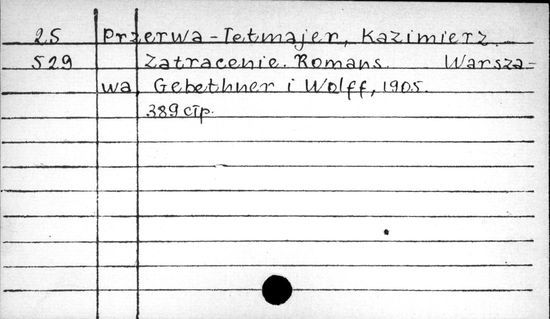 25 Przerwa-Tetmajer, Kazimierz.
529 Zatracenie. Romans. Warsza-
wa, Gebethner i Wolff, 1905.
389 стр.